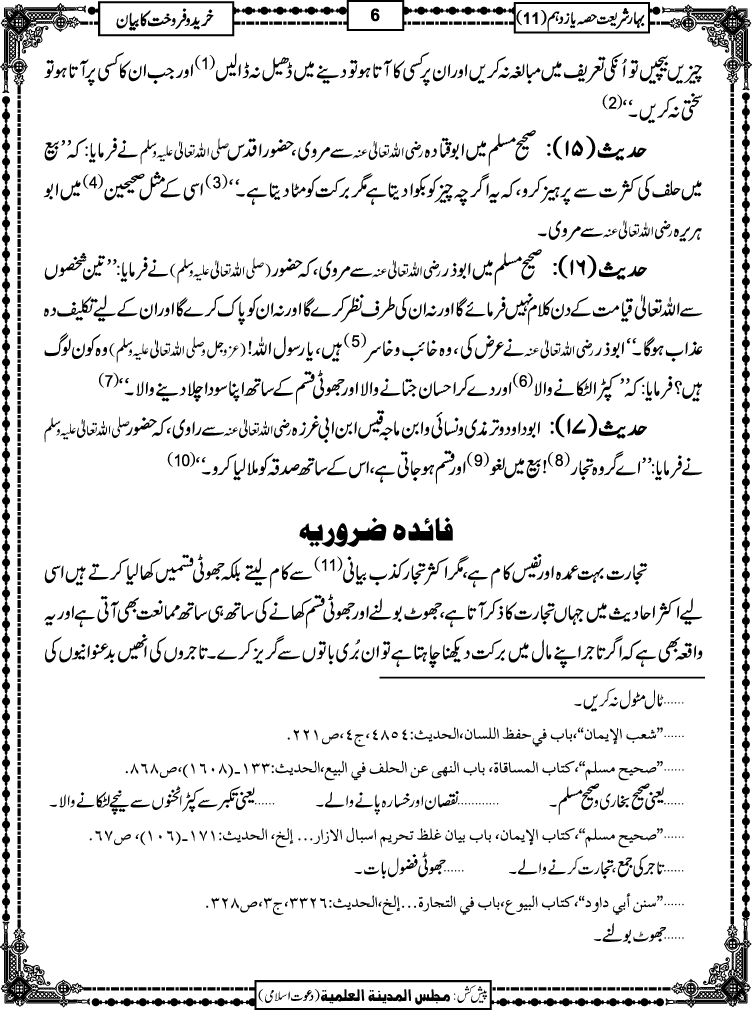 بہار شریعت حصہ یازدہم (11)
6
خرید و فروخت کا بیان
چیزیں بیچیں تو اُنکی تعریف میں مبالغہ نہ کریں اور ان پر کسی کا آتا ہو تو دینے میں ڈھیل نہ ڈالیں (1) اور جب ان کا کسی پر آتا ہو تو
سختی نہ کریں۔‘‘ (2)
حدیث (۱۵): صحیح مسلم میں ابوقتادہ رضی اللہ تعالیٰ عنہ سے مروی، حضور اقدس صلی اللہ تعالیٰ علیہ وسلم نے فرمایا: کہ ’’بیع
میں حلف کی کثرت سے پرہیز کرو، کہ یہ اگرچہ چیز کو بکوا دیتا ہے مگر برکت کو مٹا دیتا ہے۔‘‘ (3) اسی کے مثل صحیحین (4) میں ابو
ہریرہ رضی اللہ تعالیٰ عنہ سے مروی۔
حدیث (۱۶): صحیح مسلم میں ابوذر رضی اللہ تعالیٰ عنہ سے مروی، کہ حضور (صلی اللہ تعالیٰ علیہ وسلم) نے فرمایا: ’’تین شخصوں
سے اللہ تعالیٰ قیامت کے دن کلام نہیں فرمائے گا اور نہ ان کی طرف نظر کرے گا اور نہ ان کو پاک کرے گا اور ان کے لیے تکلیف دہ
عذاب ہوگا۔‘‘ ابوذر رضی اللہ تعالیٰ عنہ نے عرض کی، وہ خائب و خاسر (5) ہیں، یا رسول اللہ! (عزوجل و صلی اللہ تعالیٰ علیہ وسلم) وہ کون لوگ
ہیں؟ فرمایا: کہ ’’کپڑا لٹکانے والا (6) اور دے کر احسان جتانے والا اور جھوٹی قسم کے ساتھ اپنا سودا چلا دینے والا۔‘‘ (7)
حدیث (۱۷): ابوداود و ترمذی و نسائی و ابن ماجہ قیس ابن ابی غرزہ رضی اللہ تعالیٰ عنہ سے راوی، کہ حضور صلی اللہ تعالیٰ علیہ وسلم
نے فرمایا: ’’اے گروہ تجار (8)! بیع میں لغو (9) اور قسم ہوجاتی ہے، اس کے ساتھ صدقہ کو ملا لیا کرو۔‘‘ (10)
فائدہ ضروریہ
تجارت بہت عمدہ اور نفیس کام ہے، مگر اکثر تجار کذب بیانی (11) سے کام لیتے بلکہ جھوٹی قسمیں کھا لیا کرتے ہیں اسی
لیے اکثر احادیث میں جہاں تجارت کا ذکر آتا ہے، جھوٹ بولنے اور جھوٹی قسم کھانے کی ساتھ ہی ساتھ ممانعت بھی آتی ہے اور یہ
واقعہ بھی ہے کہ اگر تاجر اپنے مال میں برکت دیکھنا چاہتا ہے تو ان بُری باتوں سے گریز کرے۔ تاجروں کی انھیں بدعنوانیوں کی
......ٹال مٹول نہ کریں۔
......”شعب الإيمان“، باب في حفظ اللسان، الحديث: ٤٨٥٤، ج٤، ص٢٢١.
......”صحيح مسلم“، كتاب المساقاة، باب النهى عن الحلف في البيع، الحديث: ١٣٣ـ(١٦٠٨)، ص٨٦٨.
......یعنی صحیح بخاری و صحیح مسلم۔ ............نقصان اور خسارہ پانے والے۔ ......یعنی تکبر سے کپڑا ٹخنوں سے نیچے لٹکانے والا۔
......”صحيح مسلم“، كتاب الإيمان، باب بيان غلظ تحريم اسبال الازار... إلخ، الحديث: ١٧١ـ(١٠٦)، ص٦٧.
......تاجر کی جمع، تجارت کرنے والے۔ ......جھوٹی فضول بات۔
......”سنن أبي داود“، كتاب البيوع، باب في التجارة...إلخ، الحديث: ٣٣٢٦، ج٣، ص٣٢٨.
......جھوٹ بولنے۔
پیش کش: مجلس المدينة العلمية (دعوت اسلامی)